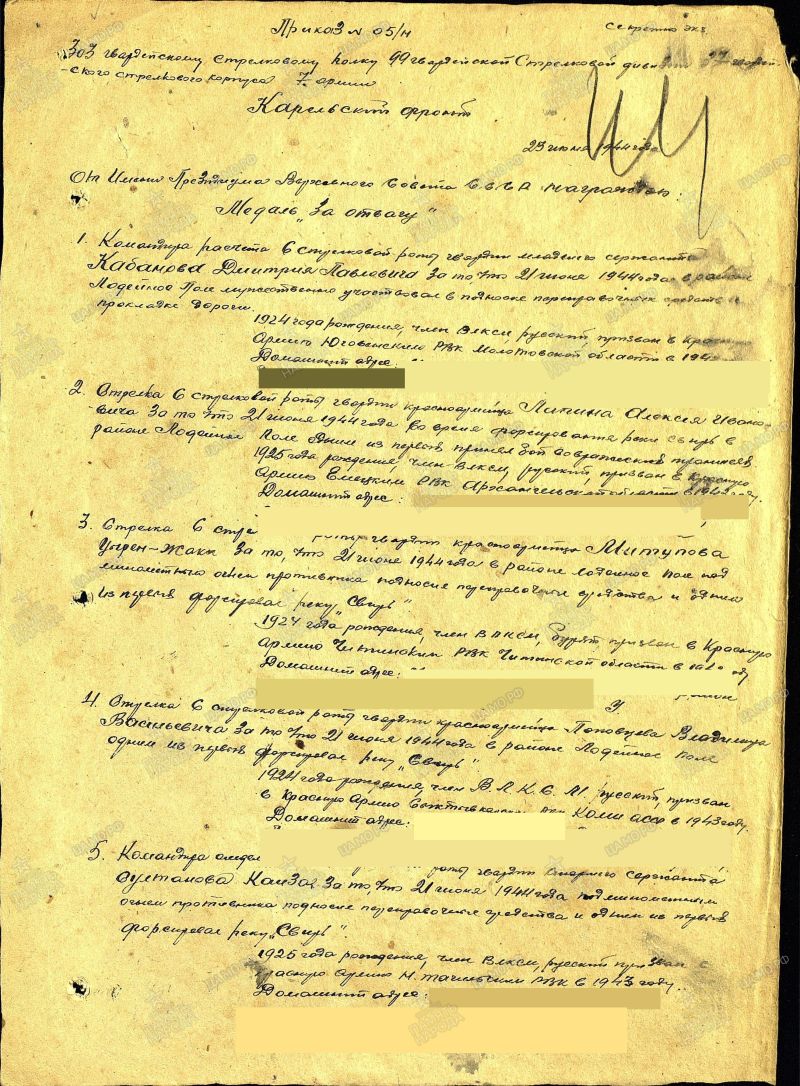 Приказ № 05/н
Секретно экз.
303 гвардейскому стрелковому полку 99 гвардейской Стрелковой дивизии 37 гвардей-
-ского стрелкового корпуса 7 армии
Карельский фронт
23 июня 1944 года
От Имени Президиума Верховного Совета С.С.С.Р. награждаю:
Медаль "За отвагу"
1. Командира расчета 6 стрелковой роты гвардии младшего сержанта
Кабанова Дмитрия Павловича За то, что 21 июня 1944 года в районе
Лодейное Поле мужественно участвовал в подноске переправочных средств и
прокладке дороги.
1924 года рождения, член ВЛКСМ, русский, призван в Красную
Армию Юговским РВК Молотовской области в 194
Домашний адрес:
2. Стрелка 6 стрелковой роты гвардии красноармейца Липина Алексея Ивано-
вича За то, что 21 июня 1944 года во время форсирования реки Свирь в
районе Лодейное Поле одним из первых принял бой с вражеской
1925 года рождения, член ВЛКСМ, русский, призван в Красную
Армию Емецким РВК Архангельской области в 1943 году.
Домашний адрес:
3. Стрелка 6 стре роты гвардии красноармейца Митупова
За то, что 21 июня 1944 года в районе Лодейное Поле под
минометным огнем противника подносил переправочные средства и одним
из первых форсировал реку "Свирь"
1924 года рождения, член ВЛКСМ, бурят, призван в Красную
Армию Читинским РВК Читинской области в году
Домашний адрес:
4. Стрелка 6 стрелковой роты гвардии красноармейца Поповцева Владимира
Васильевича За то, что 21 июня 1944 года в районе Лодейное Поле
одним из первых форсировал реку "Свирь"
1924 года рождения, член В.Л.К.С.М, русский, призван
в Красную Армию Сыктывкарским РВК Коми АССР в 1943 году.
Домашний адрес:
5. Командира отдел роты гвардии старшего сержанта
Султанова За то, что 21 июня 1944 года под минометным
огнем противника подносил переправочные средства и одним из первых
форсировал реку "Свирь".
1925 года рождения, член ВЛКСМ, русский, призван в
Красную Армию Н. Тагильским РВК в 1943 году.
Домашний адрес: